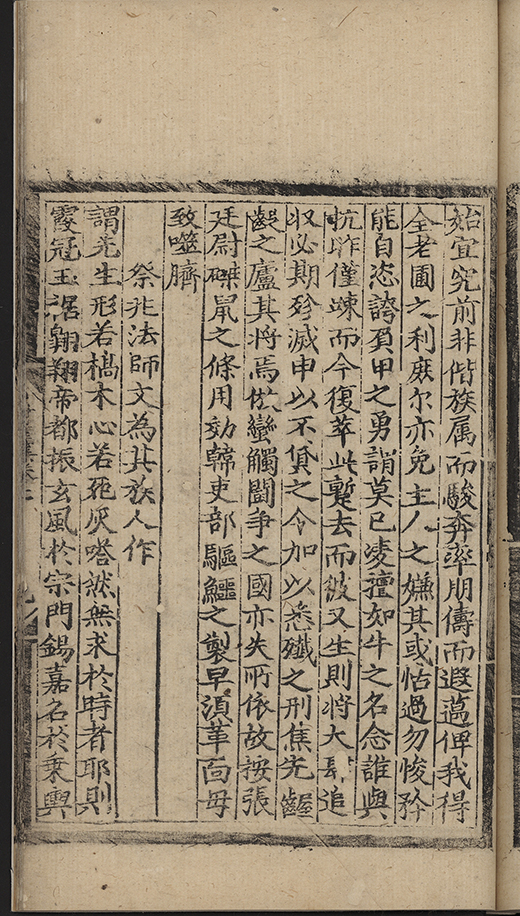 始宜究前非偕族属而駿奔率朋儔而遐邁俾我得
全老圃之利庶尔亦免主人之嫌其或怙過勿悛矜
能自恣誇負甲之勇謂莫已凌擅如牛之名念誰與
抗昨僅竦而今復萃此暫去而彼又生則將大追
収必期殄滅申以不貸之令加以悉殲之刑焦先齷
齪之廬其將焉做蠻觸鬪爭之國亦失所依故按張
廷尉磔鼠之條用効韓吏部驅鱷之製早湏革面毋
致噬臍
祭非法師文為其族人作
謂先生形若槁木心若死灰嗒然無求於時者耶則
霞冠玉裾翱翔帝都振玄風於宗門錫嘉名於乗輿